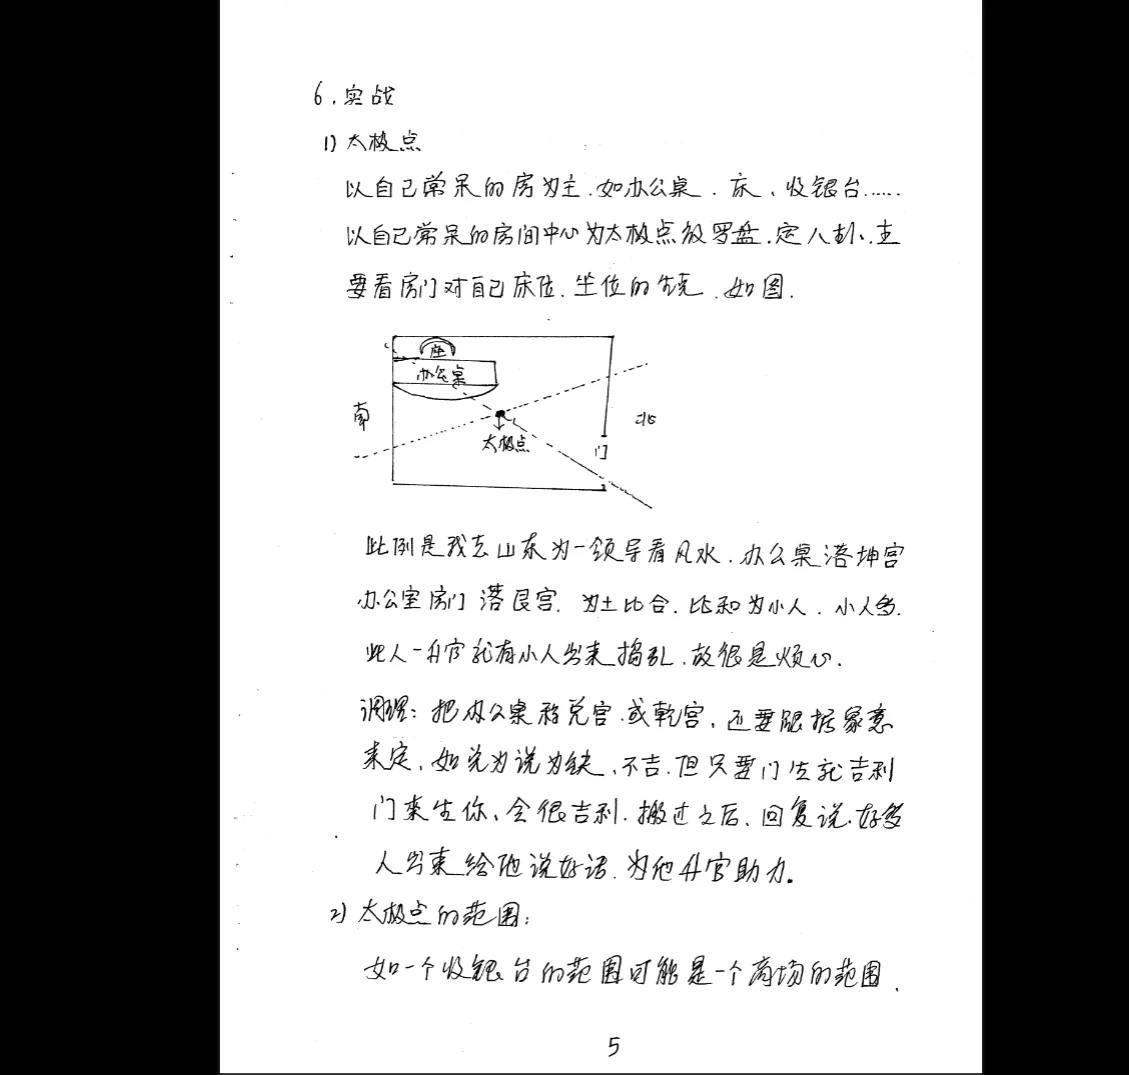 6.实战
1) 太极点
以自己常呆的房为主.如办公桌.床、收银台.....
以自己常呆的房间中心为太极点放罗盘.定八卦.主
要看房门对自己床位.坐位的生克.如图.
座
办公桌
南
北
太极点
门
此例是我去山东为一领导看风水.办公桌落坤宫
办公室房门落艮宫.为土比合.比和为小人.小人多.
此人一升官就有小人出来捣乱.故很是烦心.
调理:把办公桌移兑宫.或乾宫、还要跟据象意
来定、如兑为说为缺、不吉.但只要门生就吉利
门来生你、会很吉利.搬过之后、回复说.好多
人出来给他说好话.为他升官助力.
2) 太极点的范围:
如一个收银台的范围可能是一个商场的范围.
5